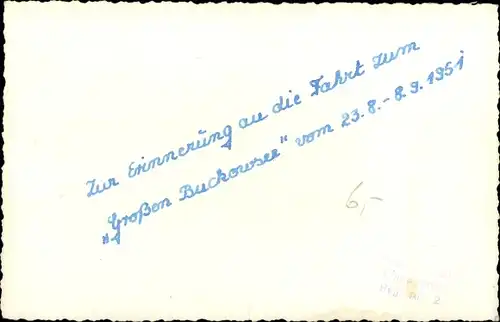 Zur Erinnerung an die Fahrt zum
„Großen Buckowsee" vom 23.8.-8.9.1951
6,-